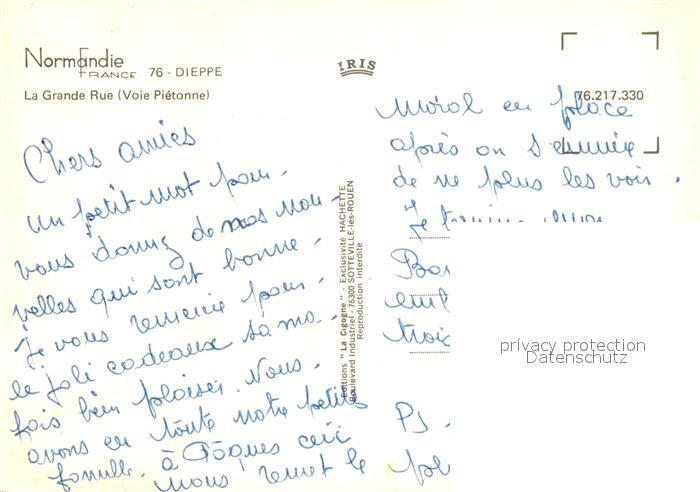 Normandie
FRANCE 76 - DIEPPE
La Grande Rue (Voie Piétonne)
IRIS
76.217.330
Chers amies
un petit mot pour
vous donnez de nos nou-
velles qui sont bonne.
Je vous remercie pour
le joli cadeaux sa ma
fois bien plaisir. Nous
avons eu toute notre petite
famille. à Pâques ceci
nous remet le
Moral en place
après on s'ennuie
de ne plus les voir.
Je termine
Bon
trois
PS
Editions "La Cigogne" - Exclusivité HACHETTE
Boulevard Industriel - 76300 SOTTEVILLE-lès-ROUEN
Reproduction interdite
privacy protection
Datenschutz